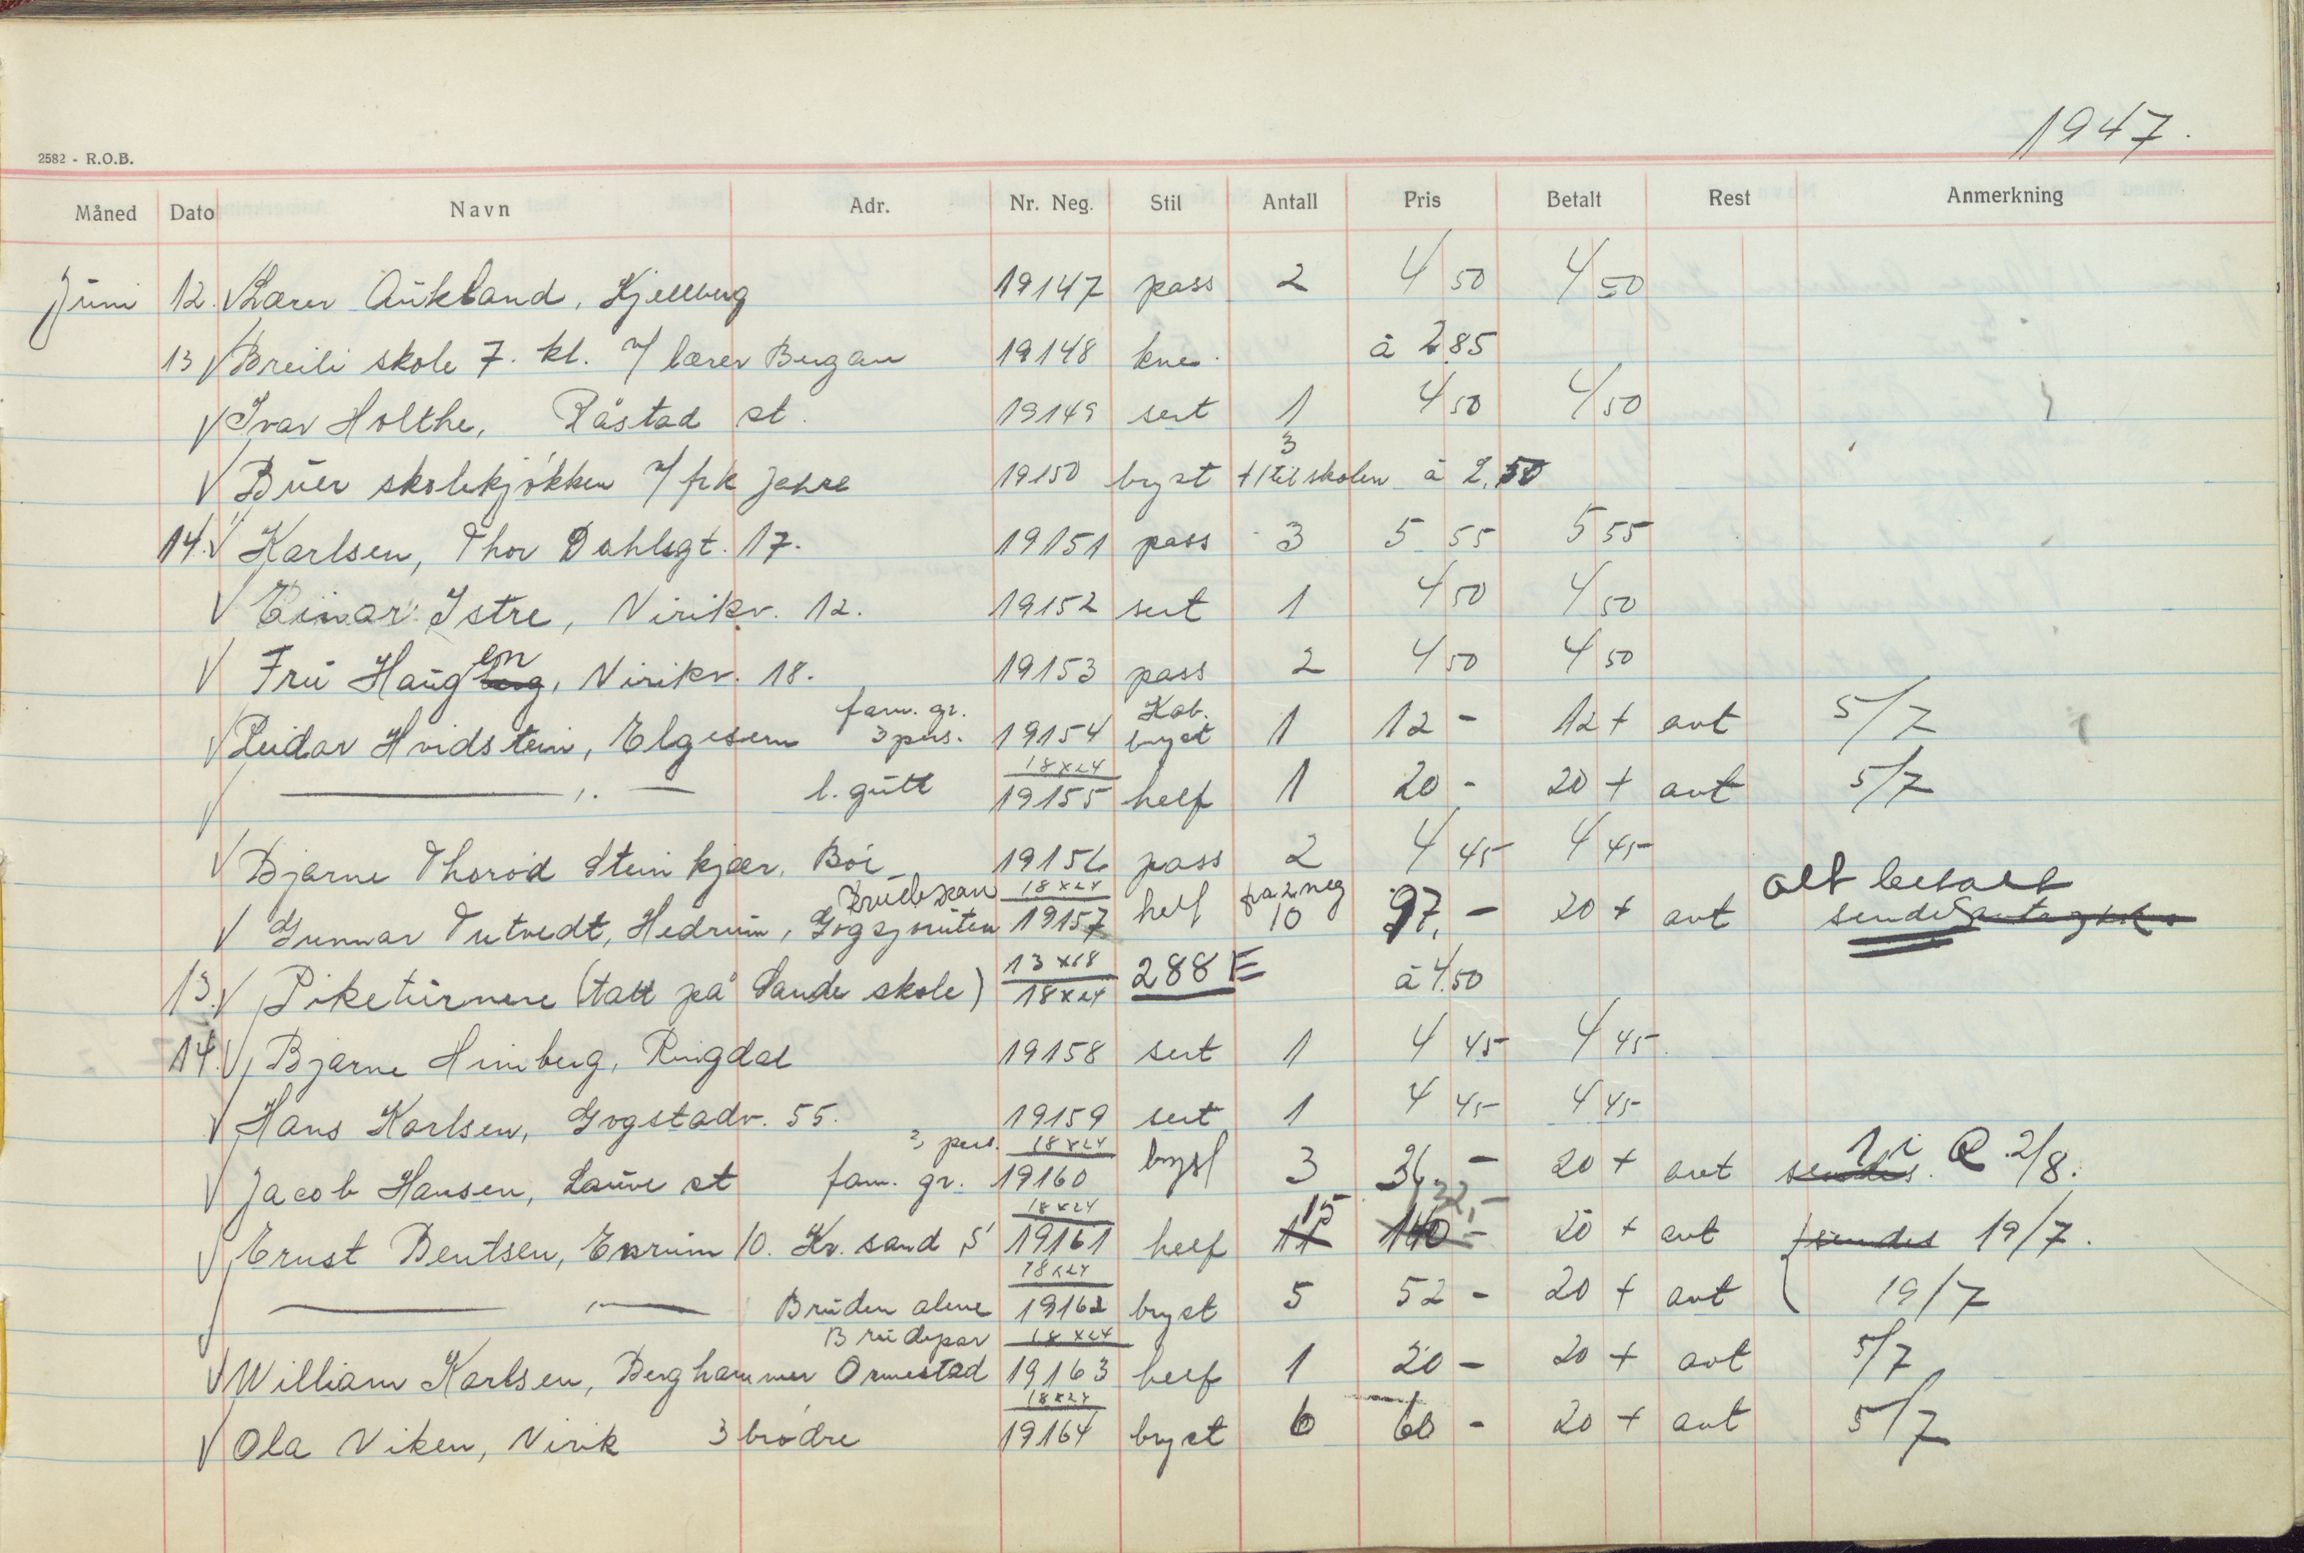 1947.
2582 - R.O.B.
Måned Dato Navn Adr. Nr. Neg. Stil Antall Pris Betalt Rest Anmerkning
Juni 12. √ Lærer Aukland, Kjellberg 19147 pass 2 4 50 4 50
13 √ Breili skole 7. kl. v/ lærer Bugau 19148 kne. à 2.85
√ Ivar Holthe, Råstad st. 19149 sert 1 4 50 4 50
3
√ Buer skolekjøkken v/ frk Jahre 19150 bryst + 1 til skolen à 2.50
14. √ Karlsen, Thor Dahlsgt. 17. 19151 pass 3 5 55 5 55
√ Einar Istre, Nirikv. 12. 19152 sert 1 4 50 4 50
en
√ Fru Haugberg, Nirikv. 18. 19153 pass 2 4 50 4 50
fam. gr. Kab.
√ Reidar Hvidstein, Elgesem 3 pers. 19154 bryst 1 12 - 12 + avt 5/7
18x24
√ —— " — l. gutt 19155 helf 1 20 - 20 + avt 5/7
√ Bjarne Thorød Steinkjær, Bøi 19156 pass 2 4 45 4 45
18x24 fra 2 neg alt betalt
√ Gunnar Tutvedt, Hedrum, 19157 helf 10 97,- 20 + avt sendes
13x18
13. √ Piketurnere (tatt på Sande skole) 18x24 288 E à 4.50
14. √ Bjarne Himberg, Ringdal 19158 sert 1 4 45 4 45
√ Hans Karlsen, Gogstadv. 55. 19159 sert 1 4 45 4 45
3 pers. 18x24 1 i Q 2/8.
√ Jacob Hansen, Lauve st fam. gr. 19160 bryst 3 36 - 20 + avt sendes.
18x24 15 132,-
√ Ernst Bentsen, Enrum 10. Kr. sand S 19161 helf 11 140 - 20 + avt sendes 19/7.
18x24
√ —— " — Bruden alene 19162 bryst 5 52 - 20 + avt 19/7
Brudepar 18x24
√ William Karlsen, Berghammer Ormestad 19163 helf 1 20 - 20 + avt 5/7
18x24
√ Ola Viken, Nirik 3 brødre 19164 bryst 6 60 - 20 + avt 5/7